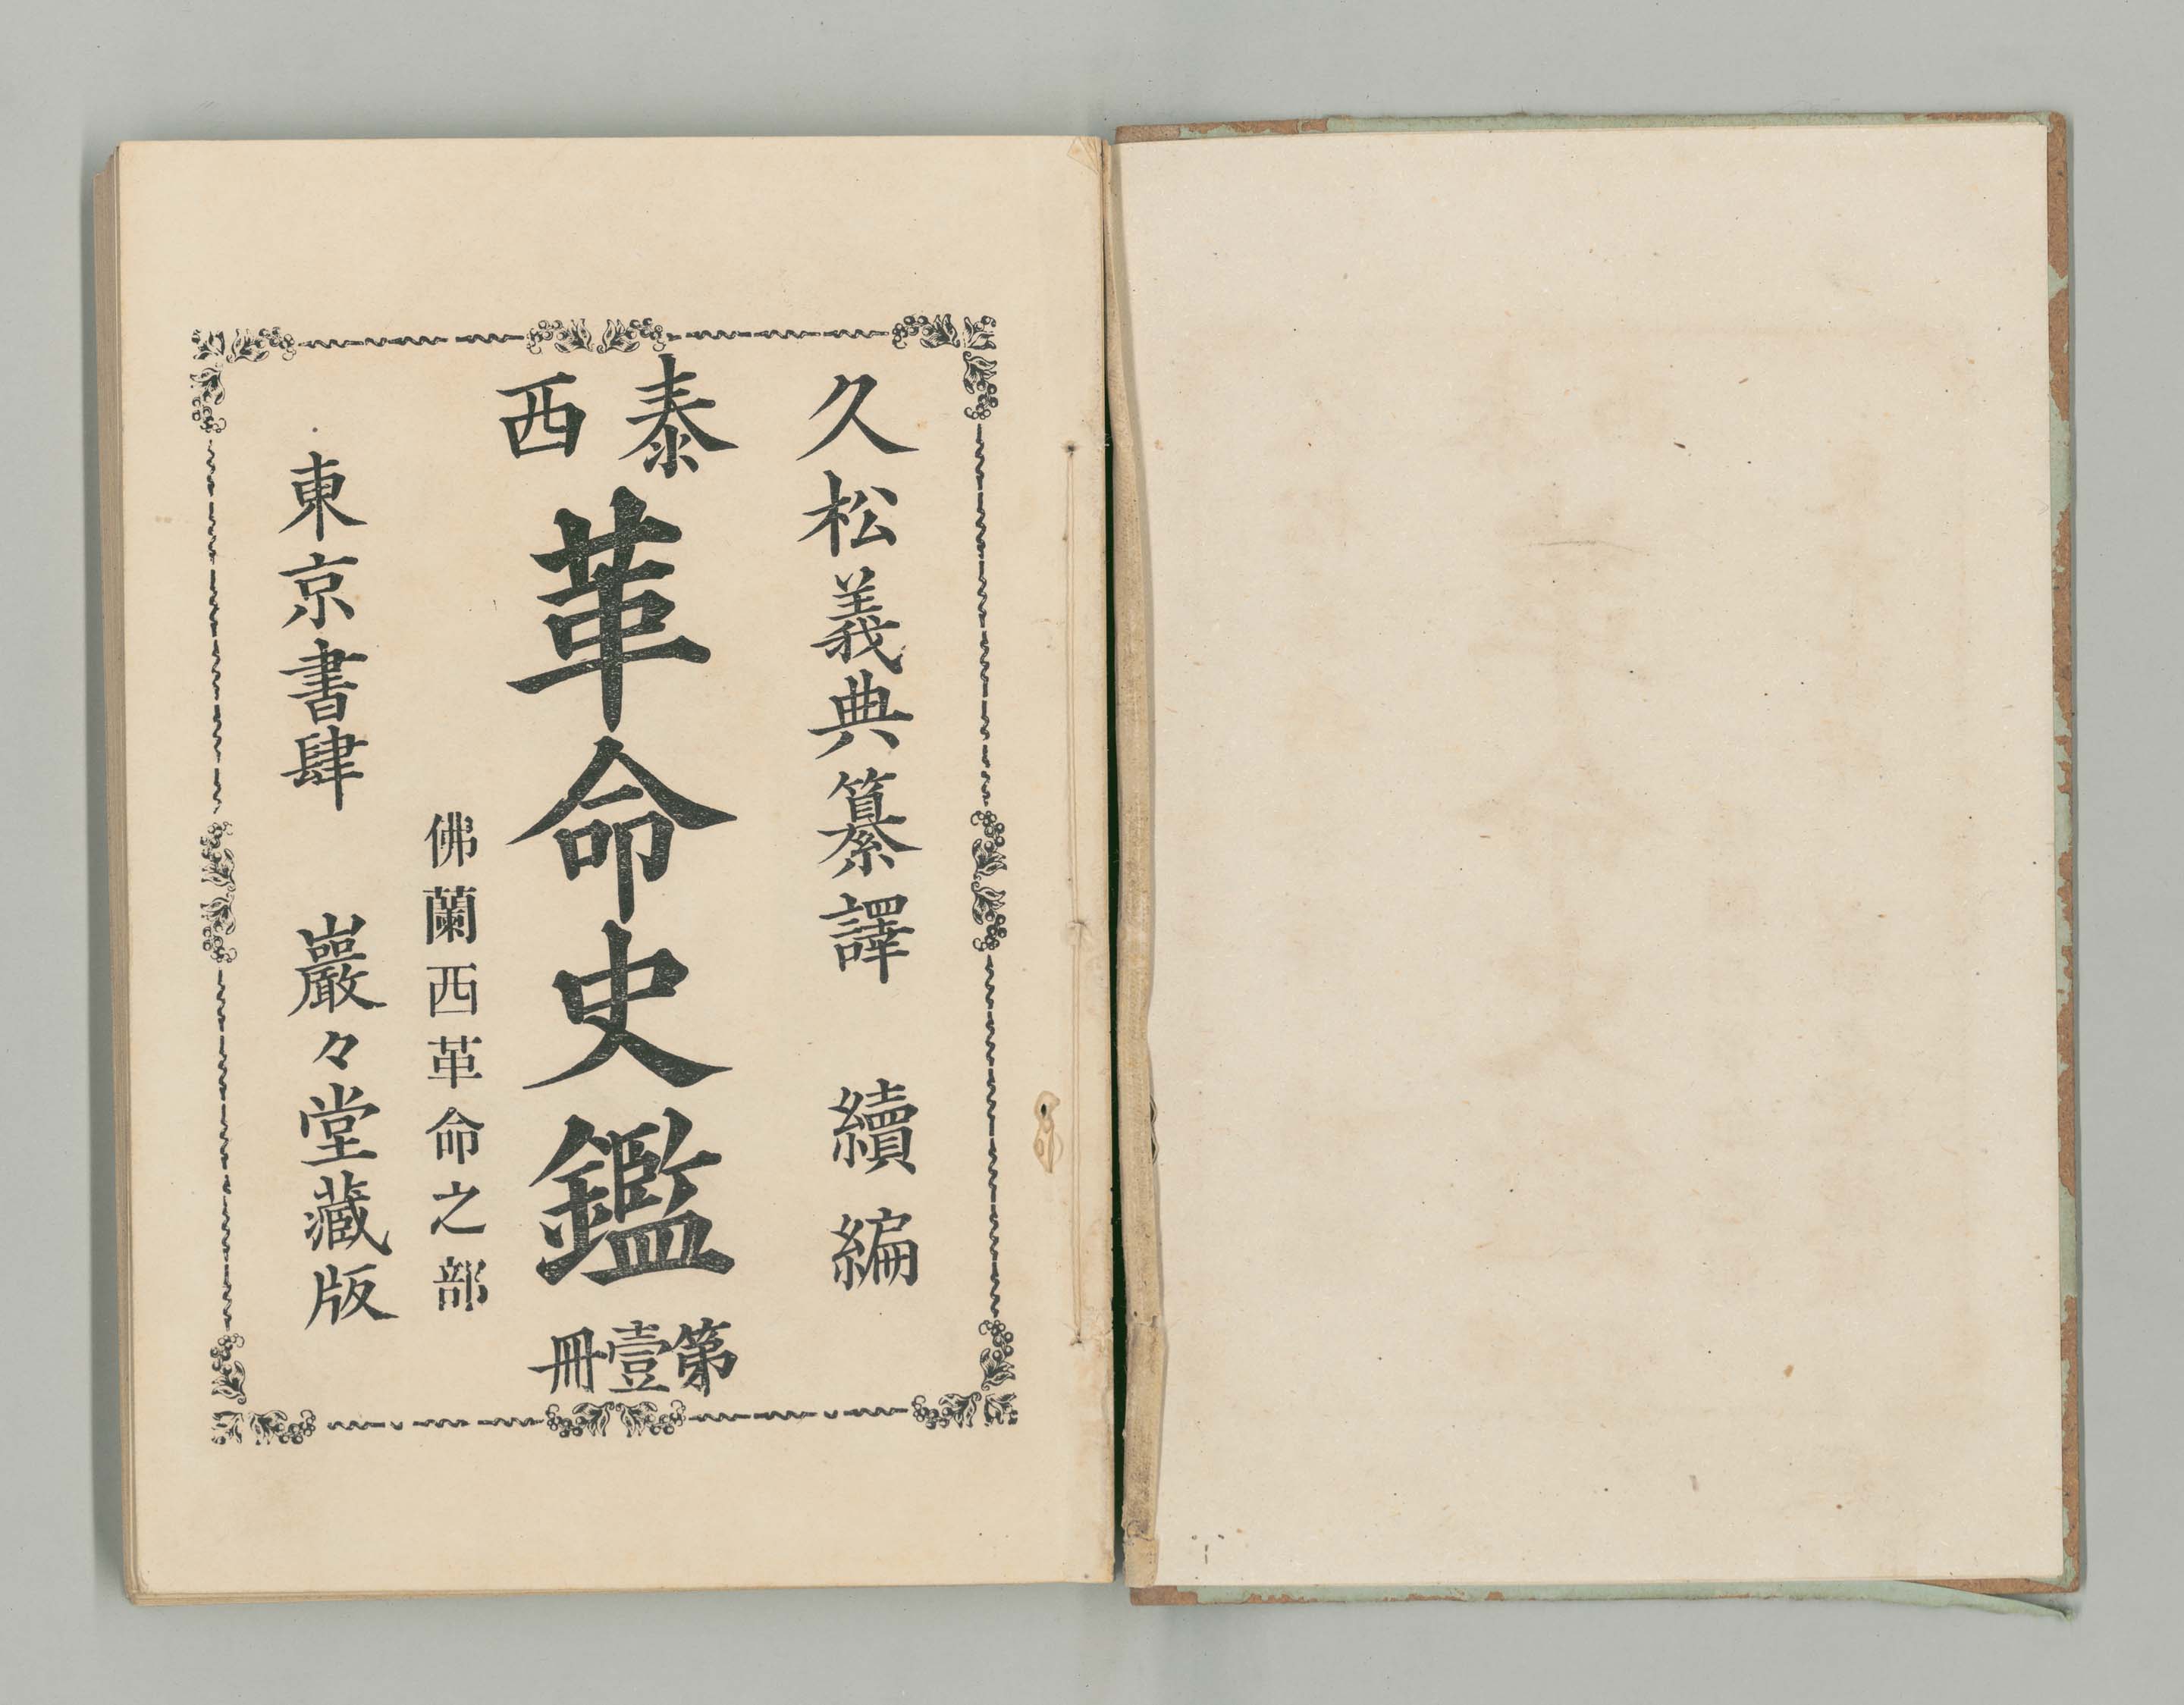 久松義典纂譯　續編
泰西
革命史鑑
第壹冊
佛蘭西革命之部
東京書肆　巖々堂藏版